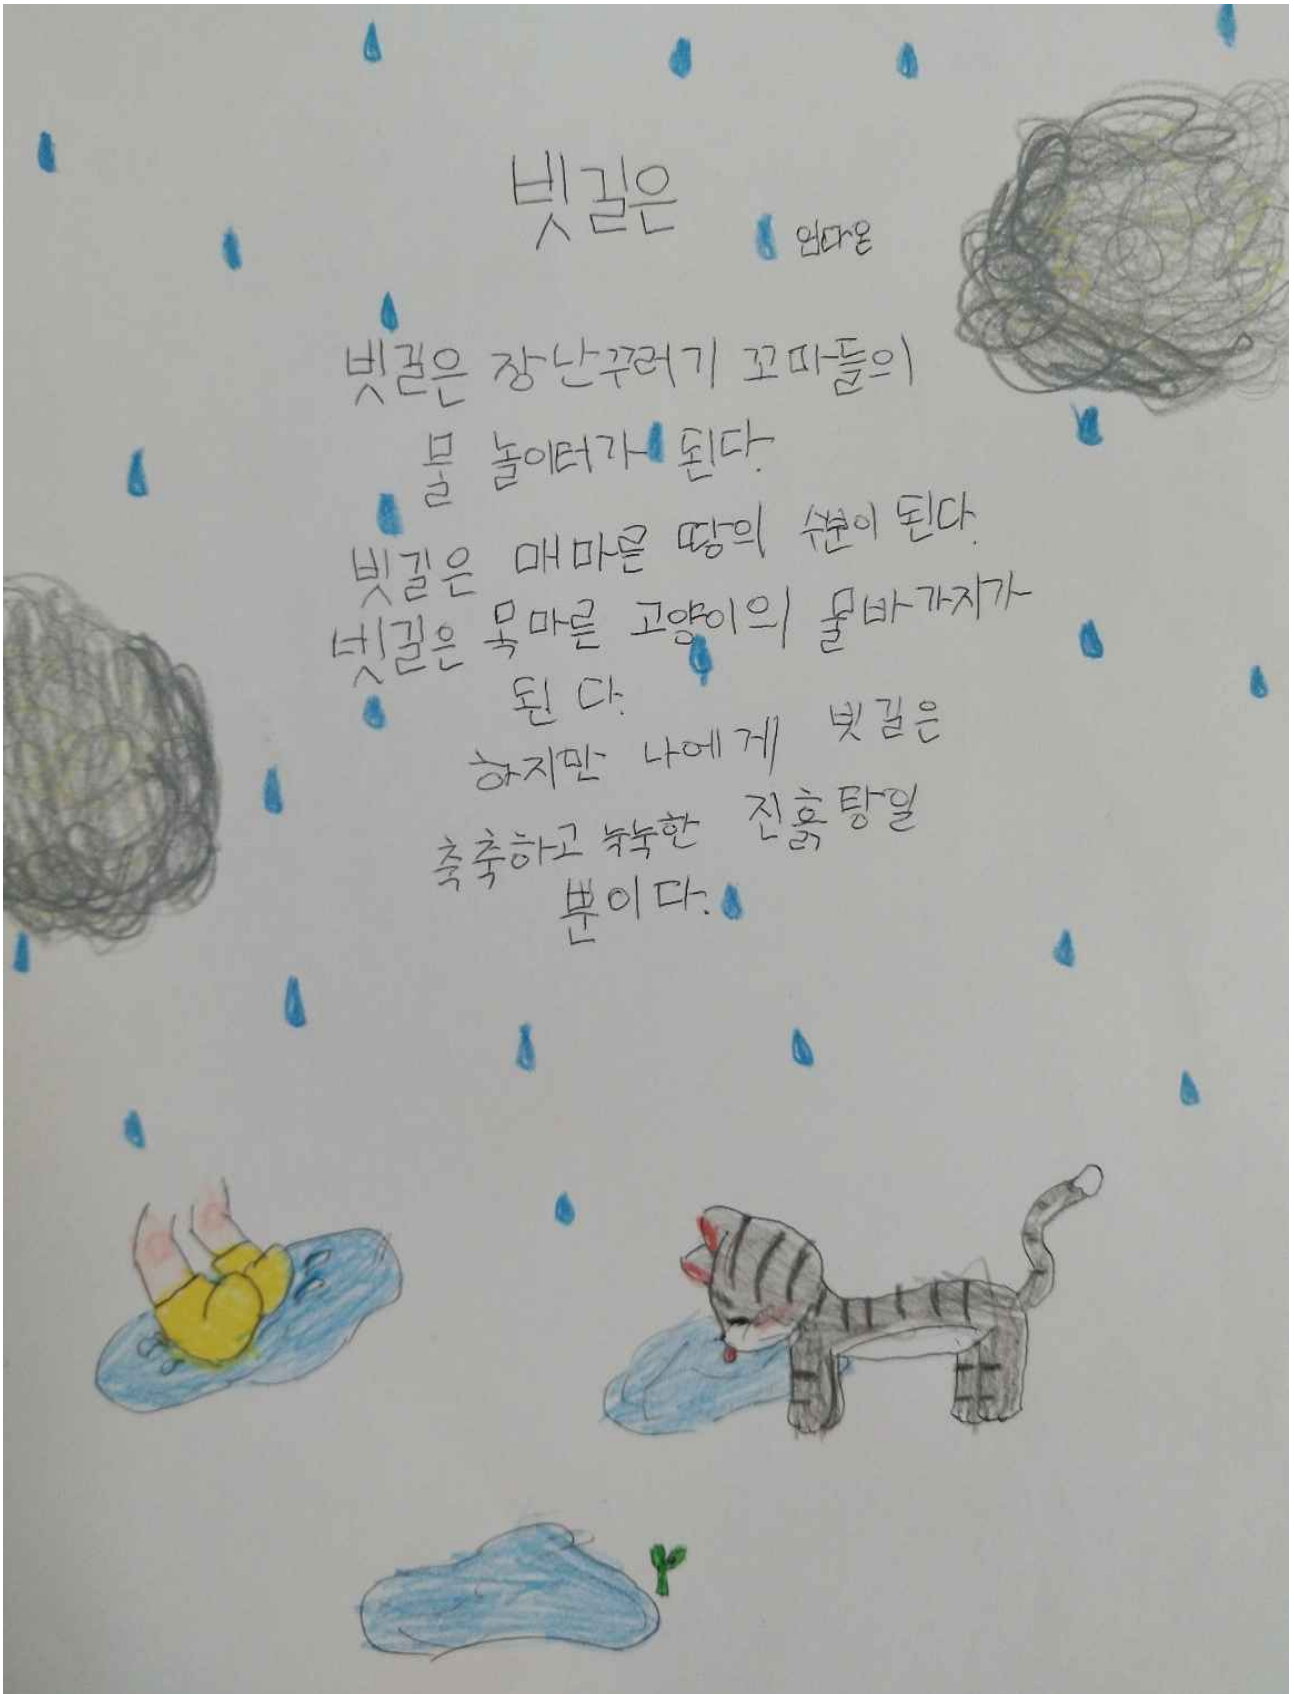 빗길은
빗길은 장난꾸러기 꼬마들의
물 놀이터가 된다.
빗길은 매마른 땅의 수분이 된다.
빗길은 목마른 고양이의 물바가지가
된다.
하지만 나에게 빗길은
축축하고 눅눅한 진흙탕일
뿐이다.